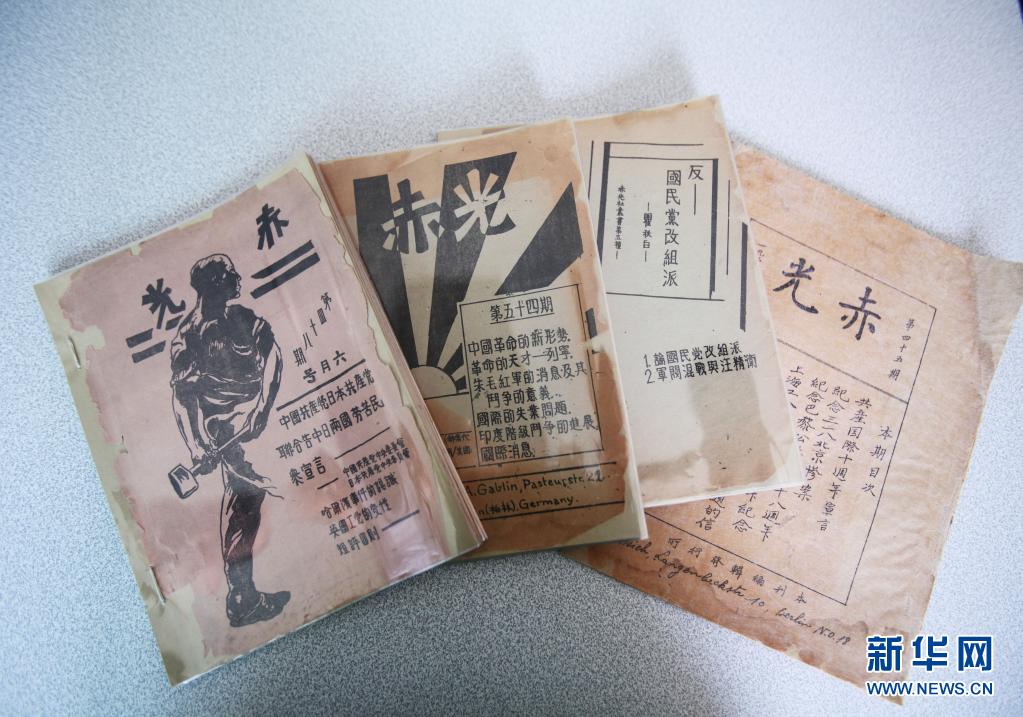 赤
光
第四十八期
六月号
中國共產党日本共產党
聯合告中日兩國勞苦民
衆宣言
中國共產党中央委員會
日本共產党中央委員會
哈爾濱事件的認識
英國工党的勝利
短評四則
赤光
第五十四期
中國革命的新形勢
革命的天才—列寧
朱毛紅軍的消息及其
鬥爭的意義
國際的失業問題
印度階級鬥爭的進展
國際消息
A. Gablin, Pasteurstr. 22
(柏林), Germany.
反—
國民黨改組派
—瞿秋白—
赤光社叢書第三種—
1. 論國民党改組派
2. 軍閥混戰與汪精衛
赤光
第四十五期
本期目次
共產国際十週年宣言
紀念三一八北京慘案
紀念巴黎公
十八週年
紀念
上海工
的信
本刊編輯
Langenbeckstr. 10, Berlin N.O. 18
新华网
WWW.NEWS.CN